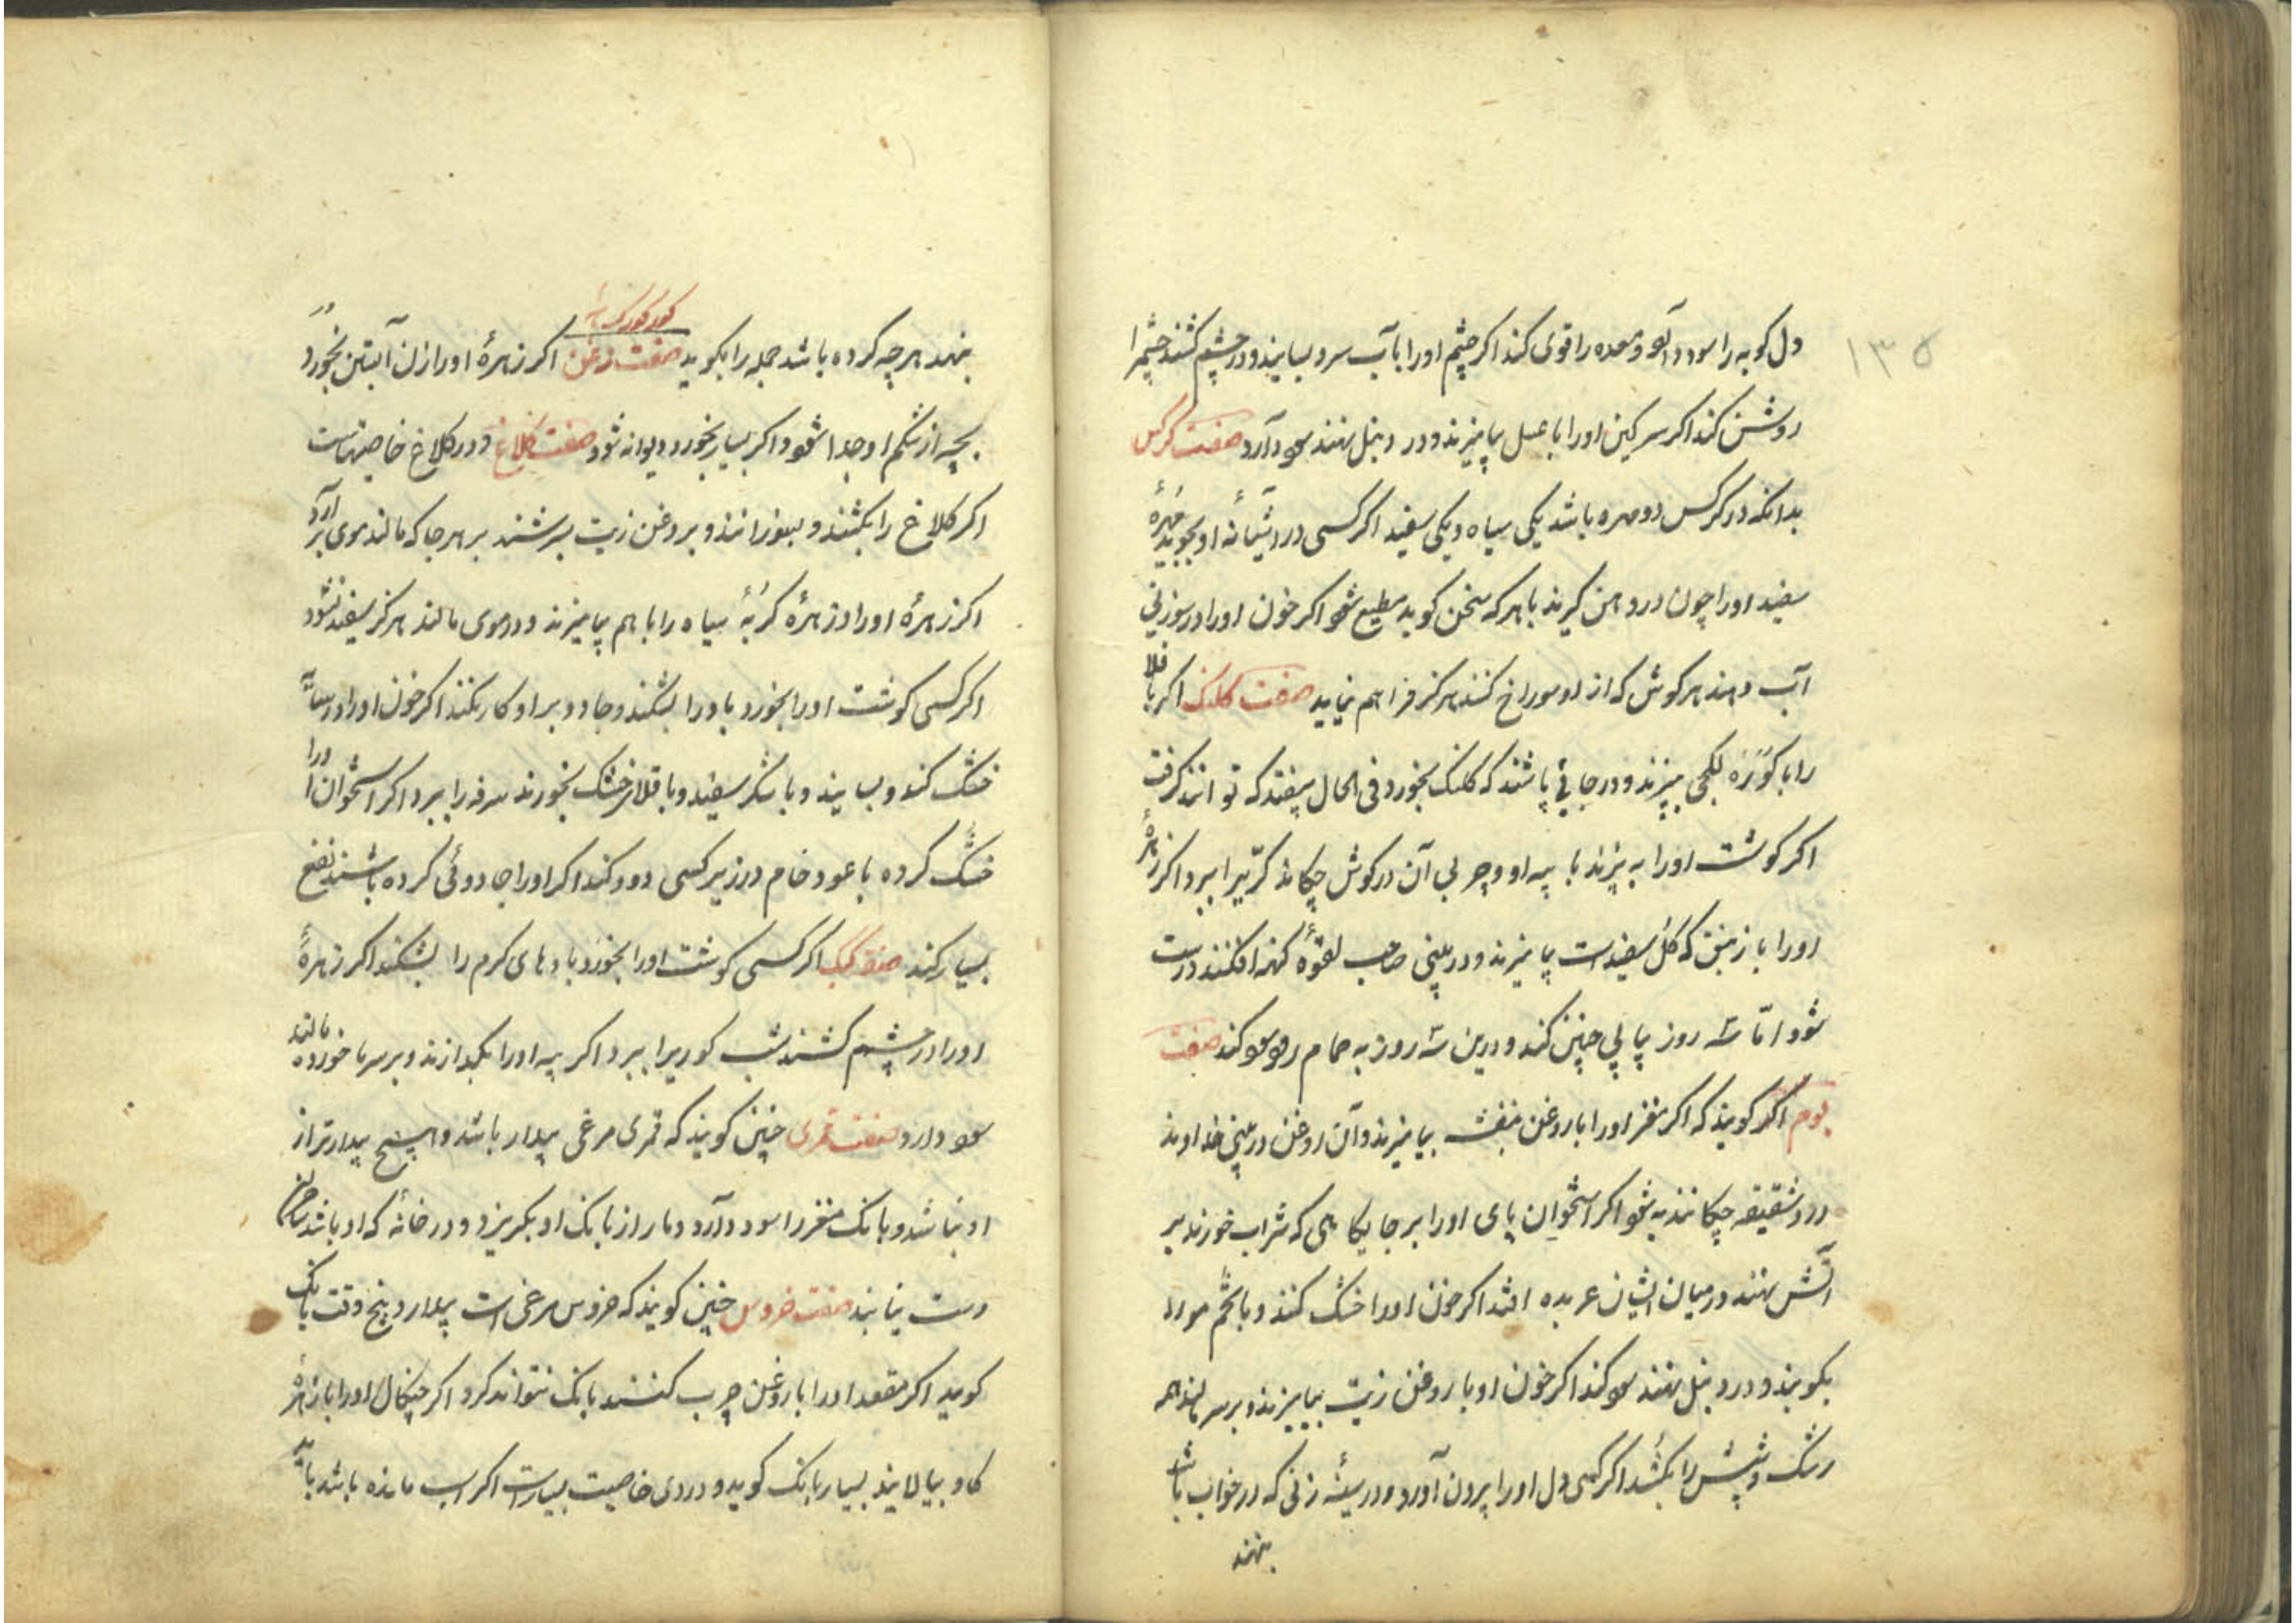 ۱۳۵
دل کوبه را سود دارد و معده را قوی کند اکر چشم اورا با آب سرد بسایند و در چشم کشند چشم را
روشن کند اکر سرکین اورا با عسل بیامیزند و در دنبل نهند سود دارد صفت کرکس
بدانکه در کرکس دو مهره باشد یکی سیاه و یکی سفید اکر کسی در آشیانه او بجوید مهرهٔ
سفید اورا چون در دهن کیرند با هر که سخن کوید مطیع شود اکر خون اورا در سوزنی
آب دهند هر کوش که از او سوراخ کنند هرکز فراهم نیاید صفت کلنک اکر باقلا
را با بپزند و در جائی پاشند که کلنک بخورد فی الحال بیفتد که توانند کرفت
اکر کوشت اورا به پزند با پیه او و چربی آن در کوش چکانند کرّی را ببرد اکر زهرهٔ
اورا با زنبق که کل سفید است بیامیزند و در بینی صاحب لقوهٔ کهنه افکنند درست
شود امّا سه روز پیاپی چنین کند و درین سه روز به حمام رود سود کند صفت
بوم اکر کویند که اکر مغز اورا با روغن بنفشه بیامیزند و آن روغن در بینی خداوند
درد شقیقه چکانند به شود اکر استخوان پای اورا بر جایکاهی که شراب خورند بر
آتش نهند در میان ایشان عربده افتد اکر خون اورا خشک کنند و با تخم مورد
بکوبند و در دنبل نهند سود کند اکر خون او با روغن زیت بیامیزند و بر سر مالند همه
رشک و شپش را بکشد اکر کسی دل اورا بیرون آورد و در سینهٔ زنی که در خواب باشد
بنهند
بنهد هر چه کرده باشد جمله را بکوید صفت زغن اکر زهرهٔ اورا زن آبستن بخورد
بچه از شکم او جدا شود و اکر بسیار بخورد دیوانه شود صفت کلاغ و در کلاغ خاصیتهاست
اکر کلاغ را بکشند و بسوزانند و بروغن زیت بسرشند بر هر جا که مالند موی بر آرد
اکر زهرهٔ اورا و زهرهٔ کربهٔ سیاه را با هم بیامیزند و در موی مالند هرکز سفید نشود
اکر کسی کوشت اورا بخورد باد را بشکند و جادو بر او کار نکند اکر خون اورا در سایه
خشک کند و بسایند و با شکر سفید و با قلاء خشک بخورند سرفه را ببرد اکر استخوان اورا
خشک کرده با عود خام در زیر کسی دود کند اکر اورا جادوئی کرده باشند نفع
بسیار کند صفت کبک اکر کسی کوشت اورا بخورد بادهای کرم را بشکند اکر زهرهٔ
اورا در چشم کشند شب کوری را ببرد اکر پیه اورا بکدازند و بر سرما خورده مالند
سود دارد صفت قمری چنین کویند که قمری مرغی بیدار باشد و هیچ بیدارتر از
او نباشد و بانک مغز را سود دارد و مار از بانک او بکریزد و در خانه که او باشد ساحران
دست نیابند صفت خروس چنین کویند که خروس مرغی است بیدار و پنج وقت بانک
کوید اکر مقعد اورا با روغن چرب کنند بانک نتواند کرد اکر چنکال اورا با زهرهٔ
کاو بیالایند بسیار بانک کوید و در وی خاصیت بسیار است اکر اسب مانده باشد باید